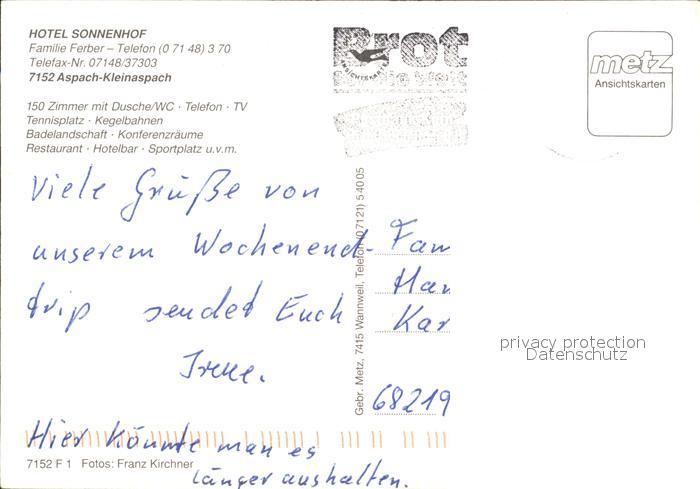 HOTEL SONNENHOF
Familie Ferber – Telefon (0 71 48) 3 70
Telefax-Nr. 07148/37303
7152 Aspach-Kleinaspach
150 Zimmer mit Dusche/WC · Telefon · TV
Tennisplatz · Kegelbahnen
Badelandschaft · Konferenzräume
Restaurant · Hotelbar · Sportplatz u.v.m.
Brot
ANSICHTSKARTEN
metz
Ansichtskarten
Viele Grüße von
unserem Wochenend-
trip sendet Euch
Irene.
Hier könnte man es
länger aushalten.
Gebr. Metz, 7415 Wannweil, Telefon (07121) 54005
Fam
Har
Kar
68219
privacy protection
Datenschutz
7152 F 1 Fotos: Franz Kirchner